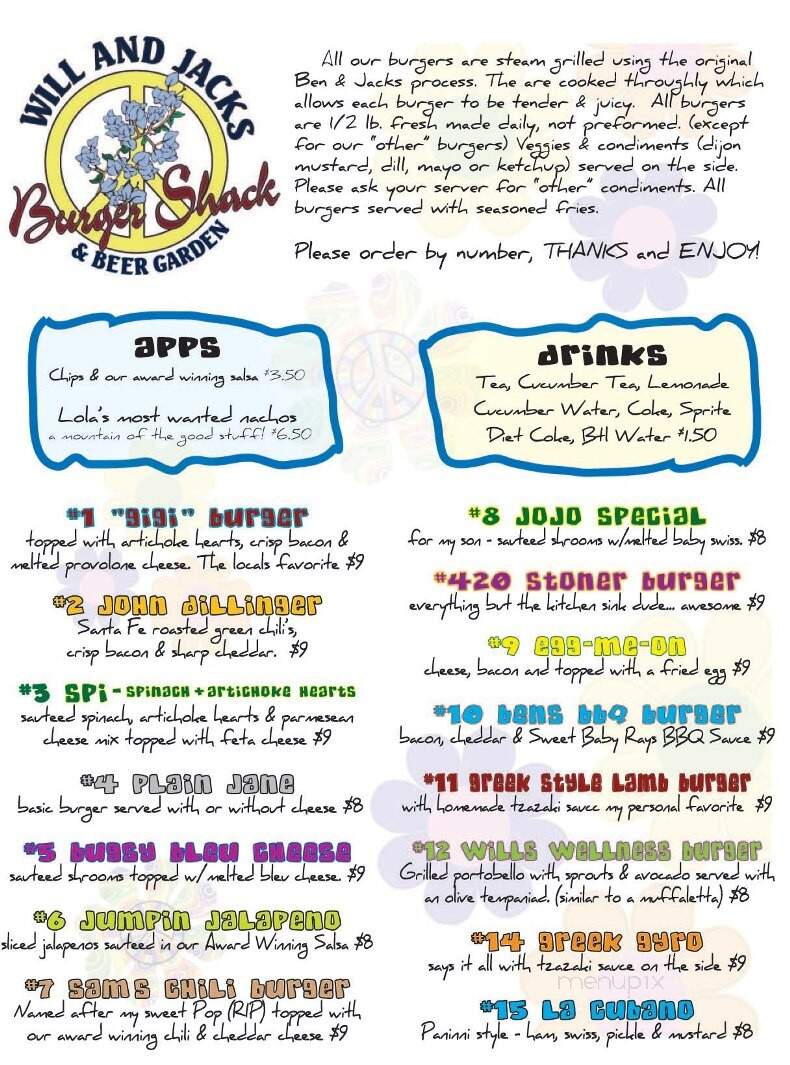 WILL AND JACKS
Burger Shack
& BEER GARDEN
All our burgers are steam grilled using the original
Ben & Jacks process. The are cooked throughly which
allows each burger to be tender & juicy. All burgers
are 1/2 lb. fresh made daily, not preformed. (except
for our "other" burgers) Veggies & condiments (dijon
mustard, dill, mayo or ketchup) served on the side.
Please ask your server for "other" condiments. All
burgers served with seasoned fries.
Please order by number, THANKS and ENJOY!
apps
Chips & our award winning salsa $3.50
Lola's most wanted nachos
a mountain of the good stuff! $6.50
drinks
Tea, Cucumber Tea, Lemonade
Cucumber Water, Coke, Sprite
Diet Coke, Btl Water $1.50
#1 "gigi" burger
topped with artichoke hearts, crisp bacon &
melted provolone cheese. The locals favorite $9
#2 John Dillinger
Santa Fe roasted green chili's,
crisp bacon & sharp cheddar. $9
#3 SPI - spinach + artichoke hearts
sauteed spinach, artichoke hearts & parmesean
cheese mix topped with feta cheese $9
#4 Plain Jane
basic burger served with or without cheese $8
#5 Bugsy Bleu Cheese
sauteed shrooms topped w/melted bleu cheese. $9
#6 Jumpin Jalapeno
sliced jalapenos sauteed in our Award Winning Salsa $8
#7 Sams Chili Burger
Named after my sweet Pop (RIP) topped with
our award winning chili & cheddar cheese $9
#8 JoJo Special
for my son - sauteed shrooms w/melted baby swiss. $8
#420 Stoner burger
everything but the kitchen sink dude... awesome $9
#9 egg-me-on
cheese, bacon and topped with a fried egg $9
#10 bens bbq burger
bacon, cheddar & Sweet Baby Rays BBQ Sauce $9
#11 Greek Style Lamb burger
with homemade tzazaki saucc my personal favorite $9
#12 Wills Wellness burger
Grilled portobello with sprouts & avocado served with
an olive tempaniad. (similar to a muffaletta) $8
#14 greek gyro
says it all with tzazaki sauce on the side $9
menupix
#15 La Cubano
Paninni style - ham, swiss, pickle & mustard $8